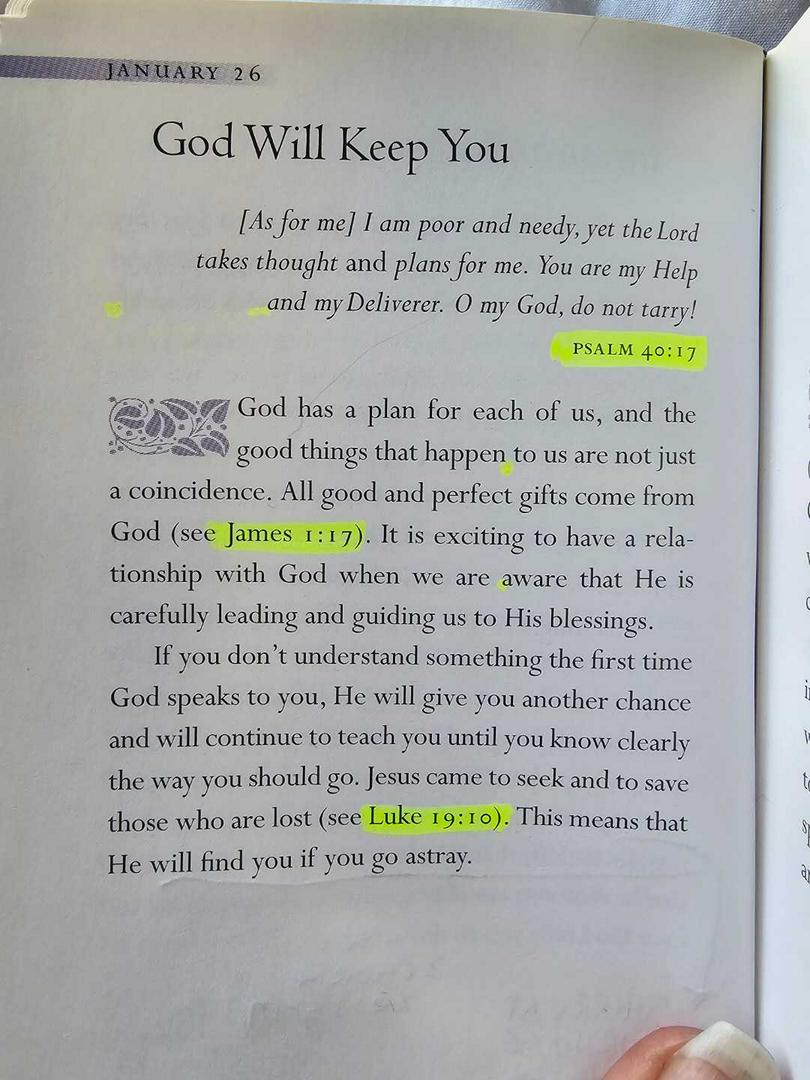 JANUARY 26
God Will Keep You
[As for me] I am poor and needy, yet the Lord
takes thought and plans for me. You are my Help
and my Deliverer. O my God, do not tarry!
PSALM 40:17
God has a plan for each of us, and the
good things that happen to us are not just
a coincidence. All good and perfect gifts come from
God (see James 1:17). It is exciting to have a rela-
tionship with God when we are aware that He is
carefully leading and guiding us to His blessings.
If you don't understand something the first time
God speaks to you, He will give you another chance
and will continue to teach you until you know clearly
the way you should go. Jesus came to seek and to save
those who are lost (see Luke 19:10). This means that
He will find you if you go astray.